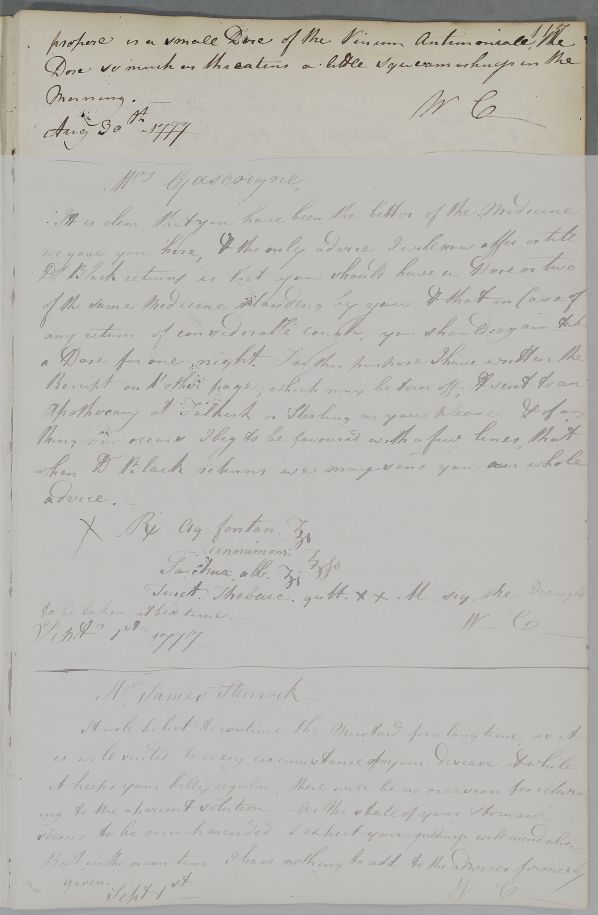 propose is a small Dose of the Vinum Antimoniale, the
Dose so much as threatens a little squeamishness in the
Morning.
W C
Augt 30th 1777
Mrs Gascoigne,
It is clear that you have been the better of the Medicine
we gave you here, & the only advice I will now offer, or till
Dr Black returns is that you should have a Dose or two
of the same Medicine standing by you & that in Case of
any return of considerable cough, you should again take
a Dose for one night. For this purpose I have written the
Receipt on t'other page, which may be torn off, & sent to an
Apothecary at Falkirk or Sterling as you please. & if any
thing new occurs I beg to be favoured with a few lines, that
when Dr Black returns we may send you our whole
advice.
X Rx Aq fontan. ℥i
cinnamom. ℥ss
Sacchar. alb. ʒi
Tinct. Thebaic. gutt. x x. M. sig. the Draught
to be taken at bed time.
W C
Septr 1st 1777
Mr James
It will be best to continue the Mustard for a long time, as it
is well suited to every circumstance of your Disease, & while
it keeps your belly regular, there will be no occasion for return
ing to the aperient solution. As the state of your stomach
seems to be much mended I expect your will mend also.
But in the mean time I have nothing to add to the advices formerly
given.
W C
Sept 1st